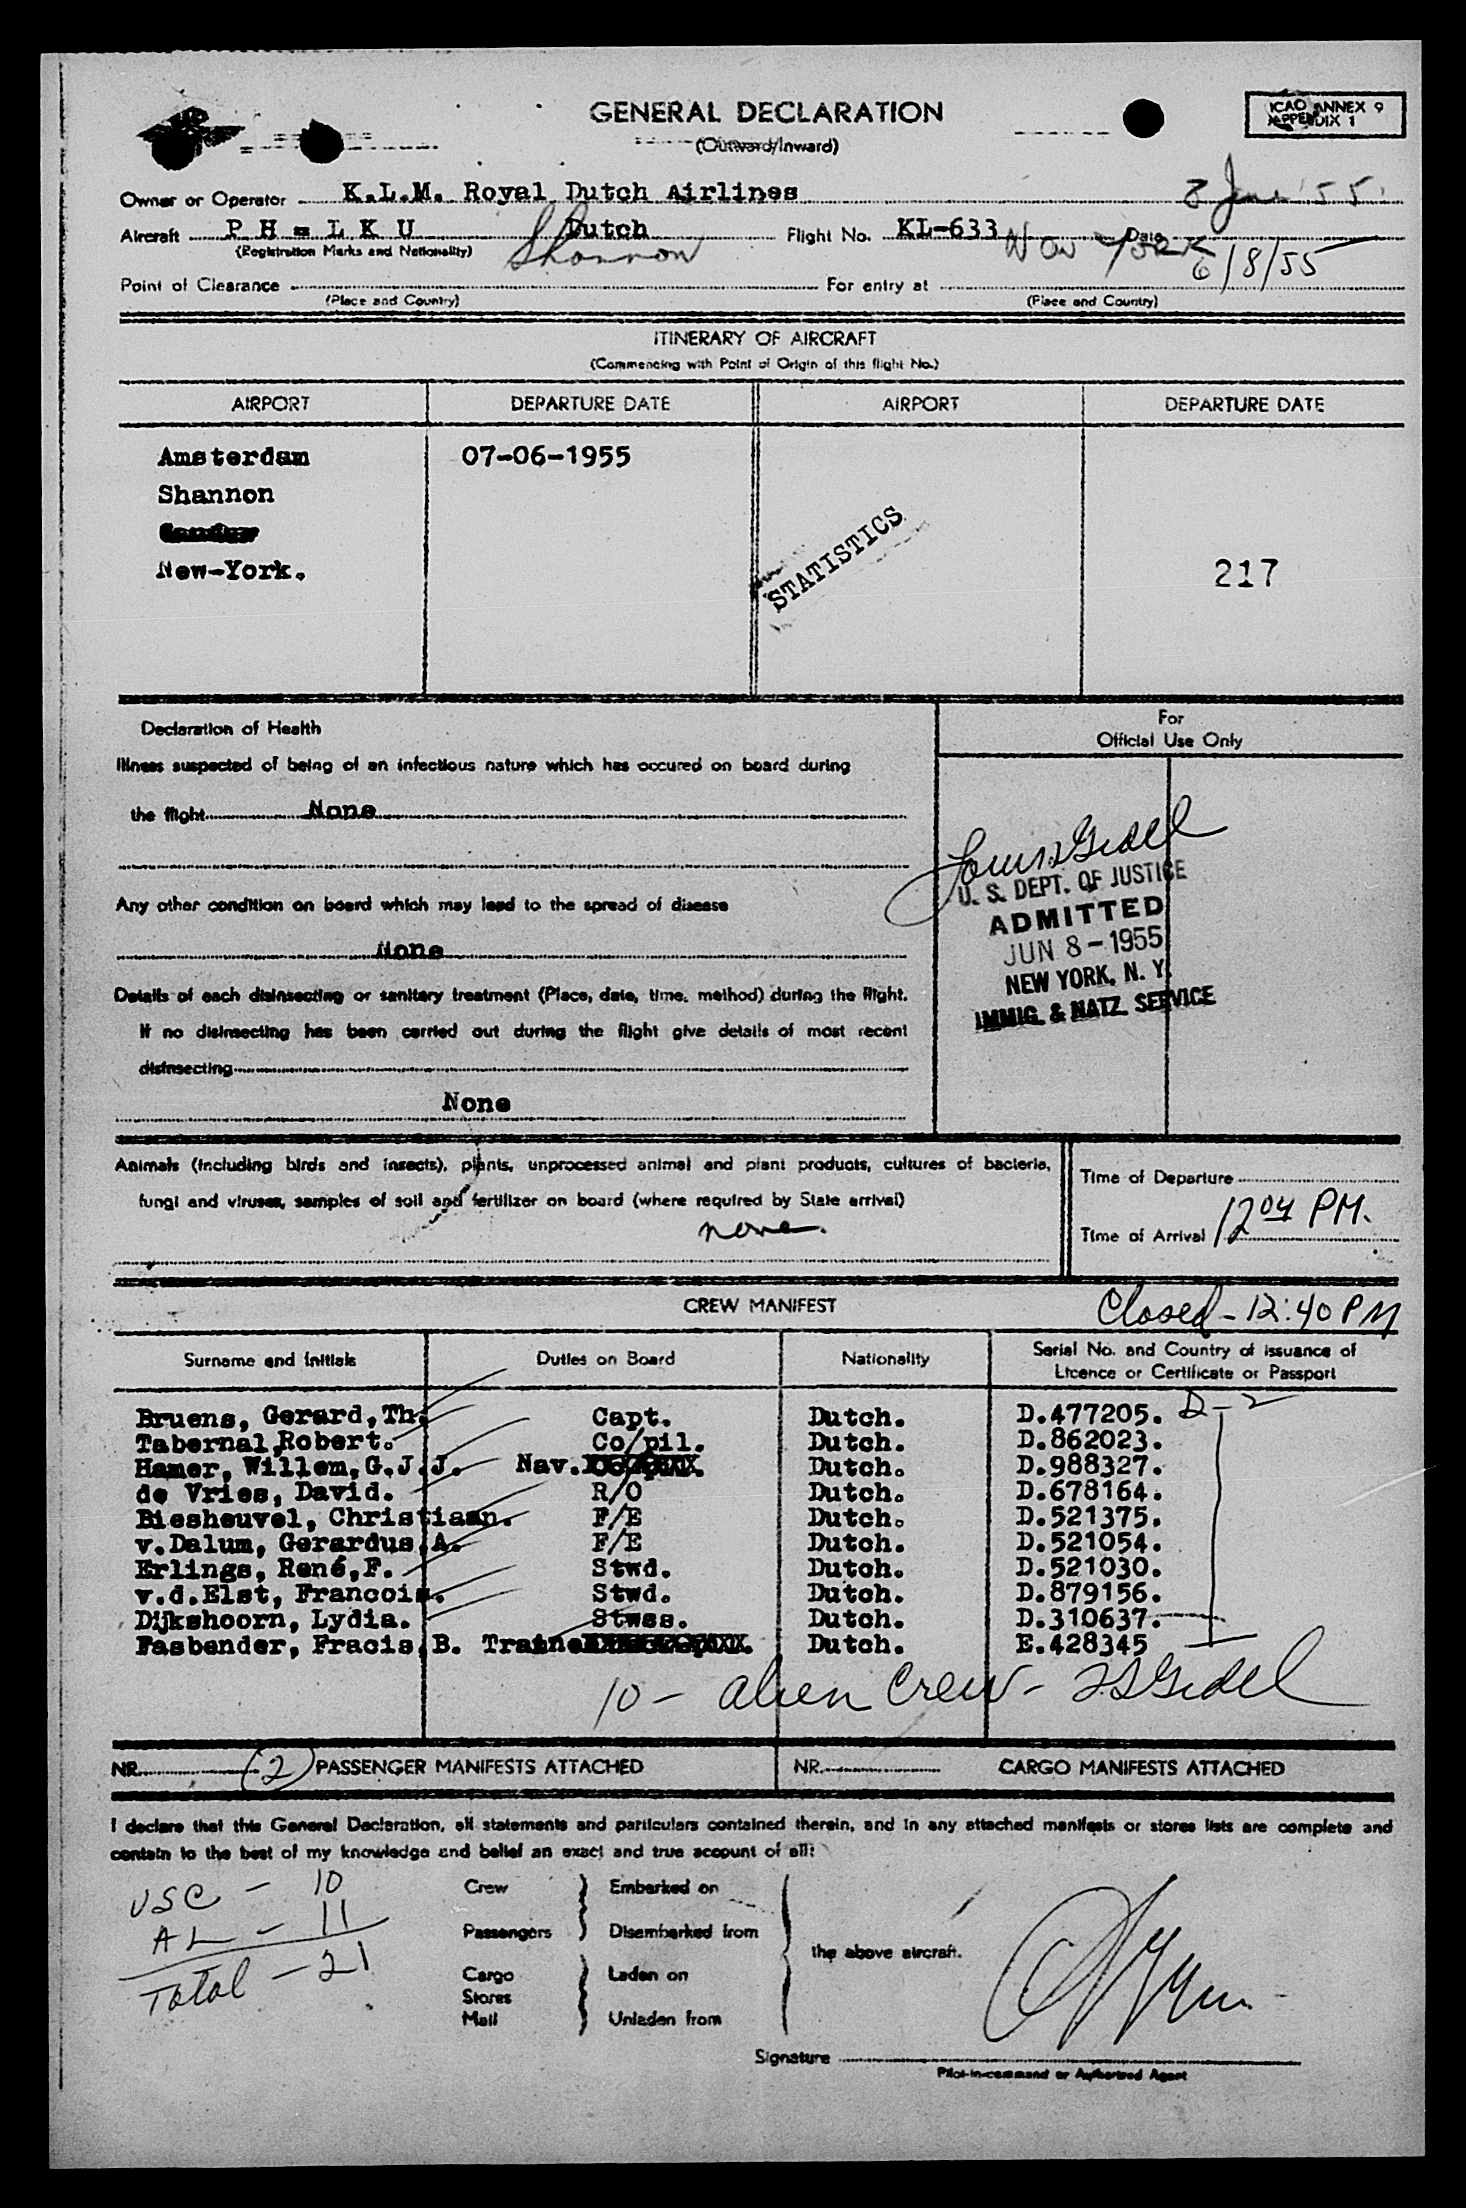 GENERAL DECLARATION
ICAO ANNEX 9
APPENDIX 1
(Outward/Inward)
Owner or Operator K.L.M. Royal Dutch Airlines 8 June '55
Aircraft P H = L K U Dutch Flight No. KL-633 Date
(Registration Marks and Nationality)
Shannon New York 6/8/55
Point of Clearance For entry at
(Place and Country) (Place and Country)
ITINERARY OF AIRCRAFT
(Commencing with Point of Origin of this flight No.)
AIRPORT DEPARTURE DATE AIRPORT DEPARTURE DATE
Amsterdam 07-06-1955
Shannon
STATISTICS
New-York. 217
Declaration of Health
For
Official Use Only
Illness suspected of being of an infectious nature which has occured on board during
the flight None
U. S. DEPT. OF JUSTICE
ADMITTED
JUN 8 - 1955
NEW YORK, N. Y.
IMMIG. & NATZ. SERVICE
Any other condition on board which may lead to the spread of disease
None
Details of each disinsecting or sanitary treatment (Place, date, time, method) during the flight.
If no disinsecting has been carried out during the flight give details of most recent
disinsecting
None
Animals (including birds and insects), plants, unprocessed animal and plant products, cultures of bacteria,
fungi and viruses, samples of soil and fertilizer on board (where required by State arrival)
none.
Time of Departure
Time of Arrival 12 04 PM.
CREW MANIFEST Closed - 12:40 PM
Surname and Initials Duties on Board Nationality Serial No. and Country of issuance of
Licence or Certificate or Passport
Bruens, Gerard, Th. Capt. Dutch. D.477205. D-2
Tabernal, Robert. Co/pil. Dutch. D.862023.
Hamer, Willem, G.J.J. Nav. Dutch. D.988327.
de Vries, David. R/O Dutch. D.678164.
Biesheuvel, Christiaan. F/E Dutch. D.521375.
v.Dalum, Gerardus A. F/E Dutch. D.521054.
Erlings, René, F. Stwd. Dutch. D.521030.
v.d.Elst, Francois. Stwd. Dutch. D.879156.
Dijkshoorn, Lydia. Stwss. Dutch. D.310637.
Fasbender, Fracis, B. Traine Dutch. E.428345
10 - alien Crew -
NR. (2) PASSENGER MANIFESTS ATTACHED NR. CARGO MANIFESTS ATTACHED
I declare that this General Declaration, all statements and particulars contained therein, and in any attached manifests or stores lists are complete and
contain to the best of my knowledge and belief an exact and true account of all:
USC - 10
AL - 11
Total - 21
Crew Embarked on
Passengers Disembarked from
the above aircraft.
Cargo Laden on
Stores
Mail Unladen from
Signature
Pilot-in-command or Authorized Agent